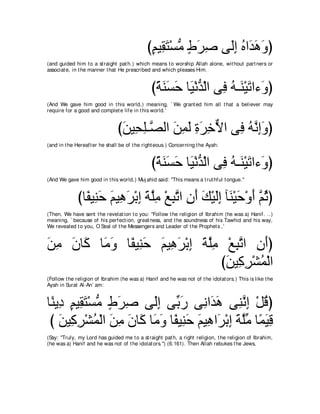 (وَهَدَاهُ إِلَى صِرَطٍ مُّسْتَقِيمٍ)
(and guided him to a straight path.) which means to worship Allah alone, without partners or
associate, in the manner that He prescribed and which pleases Him.
(وَءاتَيْنَـهُ فِى الْدُّنْيَا حَسَنَةً)
(And We gave him good in this world,) meaning, `We granted him all that a believer may
require for a good and complete life in this world.'
(وَإِنَّهُ فِى الاٌّخِرَةِ لَمِنَ الصَّـلِحِينَ)
(and in the Hereafter he shall be of the righteous.) Concerning the Ayah:
(وَءاتَيْنَـهُ فِى الْدُّنْيَا حَسَنَةً)
(And We gave him good in this world,) Mujahid said: "This means a truthful tongue."
(ثُمَّ أَوْحَيْنَآ إِلَيْكَ أَنِ اتَّبِعْ مِلَّةَ إِبْرَهِيمَ حَنِيفًا)
(Then, We have sent the revelation to you: "Follow the religion of Ibrahim (he was a) Hanif...)
meaning, `because of his perfection, greatness, and the soundness of his Tawhid and his way,
We revealed to you, O Seal of the Messengers and Leader of the Prophets,'
(أَنِ اتَّبِعْ مِلَّةَ إِبْرَهِيمَ حَنِيفًا وَمَا كَانَ مِنَ
الْمُشْرِكِينَ)
(Follow the religion of Ibrahim (he was a) Hanif and he was not of the idolators.) This is like the
Ayah in Surat Al-An`am:
(قُلْ إِنَّنِى هَدَانِى رَبِّى إِلَى صِرَطٍ مُّسْتَقِيمٍ دِينًا
قِيَمًا مِّلَّةَ إِبْرَاهِيمَ حَنِيفًا وَمَا كَانَ مِنَ الْمُشْرِكِينَ )
(Say: "Truly, my Lord has guided me to a straight path, a right religion, the religion of Ibrahim,
(he was a) Hanif and he was not of the idolators.") (6:161). Then Allah rebukes the Jews,